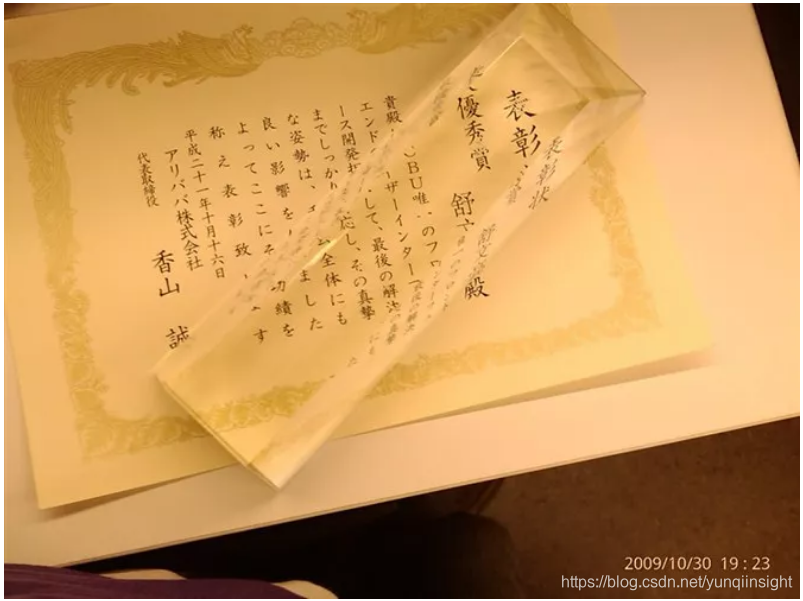 表彰状
優秀賞
舒
殿
貴殿 BU唯 のフ
エンド ーザーインター
ース開発 して、最後の解決
までしっかり 応し、その真摯
な姿勢は、 全体にも
良い影響を ました
よってここにそ 功績を
称え表彰致 す
平成二十一年十月十六日
アリババ株式会社
代表取締役
香山 誠
2009/10/30 19:23
https://blog.csdn.net/yunqiinsight